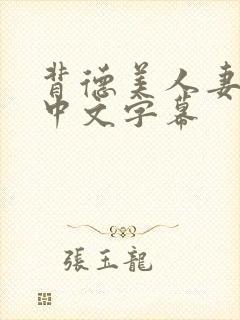 背德美人妻
中文字幕
張玉龍